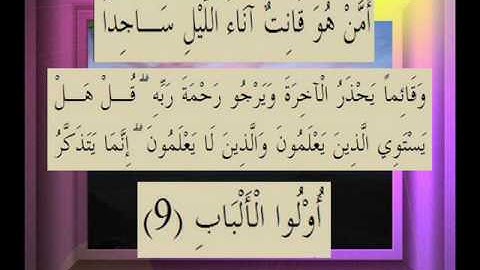 أَمَّنْ هُوَ قَانِتٌ آنَاءَ اللَّيْلِ سَـــاجِدًا
وَقَائِماً يَحْذَرُ الْآخِرَةَ وَيَرْجُو رَحْمَةَ رَبِّهِ ۗ قُـــلْ هَـــلْ
يَسْتَوِي الَّذِينَ يَعْلَمُونَ وَالَّذِينَ لَا يَعْلَمُونَ ۗ إِنَّمَا يَتَذَكَّرُ
أُوْلُوا الْأَلْبَابِ (9)